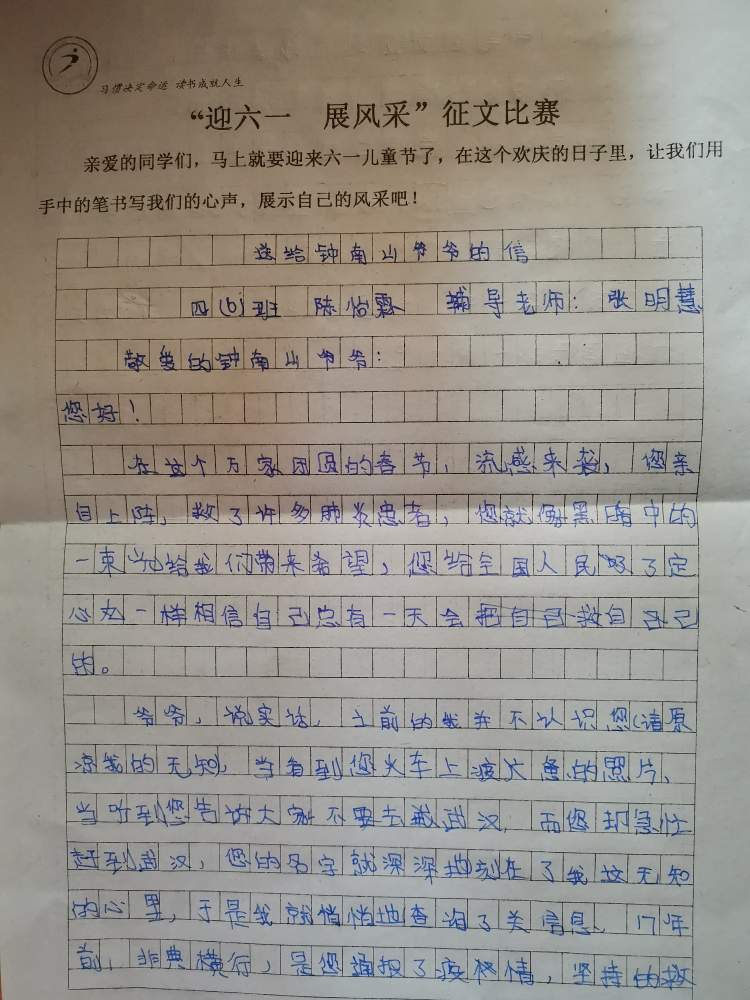 习惯决定命运 读书成就人生
“迎六一 展风采”征文比赛
亲爱的同学们，马上就要迎来六一儿童节了，在这个欢庆的日子里，让我们用
手中的笔书写我们的心声，展示自己的风采吧！
送给钟南山爷爷的信
四(6)班 陈怡霖 辅导老师：张明慧
敬爱的钟南山爷爷：
您好！
在这个万家团圆的春节，流感来袭，您亲
自上阵，救了许多肺炎患者，您就像黑暗中的
一束光给我们带来希望，您给全国人民吸了定
心丸一样相信自己总有一天会把自己救自己
的。
爷爷，说实话，之前的我并不认识您（请原
凉我的无知），当看到您火车上疲惫的照片，
当听到您告诉大家不要去武汉，而您却急忙
赶到武汉，您的名字就深深地刻在了我这无知
的心里，于是我就悄悄地查询了关信息、17年
前，非典横行，是您通报了疫情，坚持的救